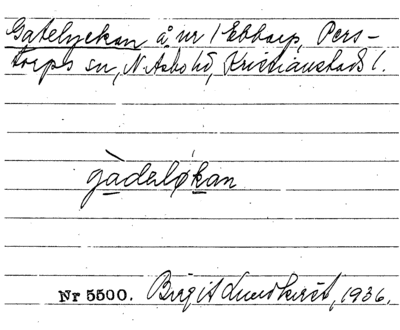 Gatelyckan å nr 1 Ebbarp, Pers-
torps sn, N. Åsbo hd, Kristianstads l.
gàdeløkan
Nr 5500. Birgit Lundkvist, 1936.